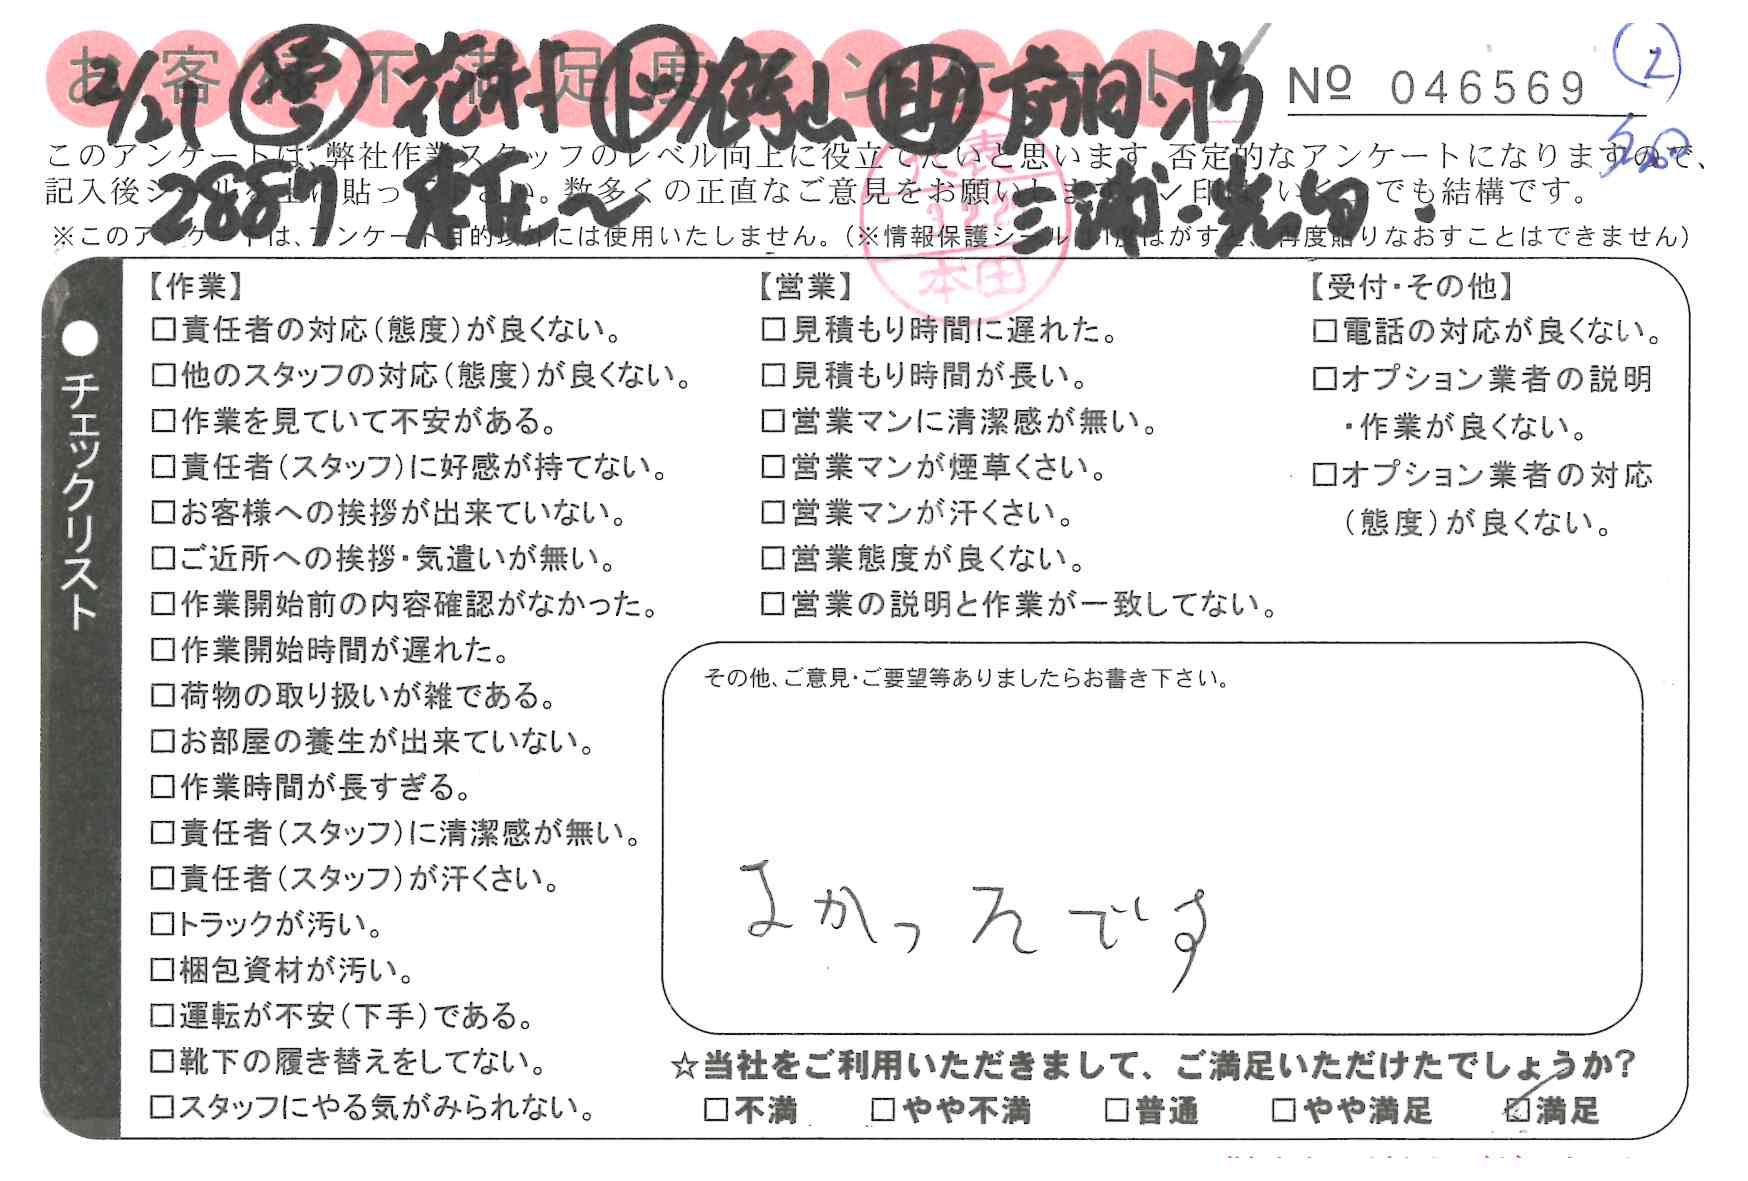 お客様不満足度アンケート
2/21 営 花村 ト 館山 助 前田 渋
No 046569
2
このアンケートは、弊社作業スタッフのレベル向上に役立てたいと思います。否定的なアンケートになりますので、
記入後シールを上に貼って下さい。数多くの正直なご意見をお願いします。レ印は、いくつでも結構です。
2887
三浦・
※このアンケートは、アンケート目的以外には使用いたしません。(※情報保護シールは1度はがすと、再度貼りなおすことはできません)
本田
●チェックリスト
【作業】
□責任者の対応(態度)が良くない。
□他のスタッフの対応(態度)が良くない。
□作業を見ていて不安がある。
□責任者(スタッフ)に好感が持てない。
□お客様への挨拶が出来ていない。
□ご近所への挨拶・気遣いが無い。
□作業開始前の内容確認がなかった。
□作業開始時間が遅れた。
□荷物の取り扱いが雑である。
□お部屋の養生が出来ていない。
□作業時間が長すぎる。
□責任者(スタッフ)に清潔感が無い。
□責任者(スタッフ)が汗くさい。
□トラックが汚い。
□梱包資材が汚い。
□運転が不安(下手)である。
□靴下の履き替えをしてない。
□スタッフにやる気がみられない。
【営業】
□見積もり時間に遅れた。
□見積もり時間が長い。
□営業マンに清潔感が無い。
□営業マンが煙草くさい。
□営業マンが汗くさい。
□営業態度が良くない。
□営業の説明と作業が一致してない。
【受付・その他】
□電話の対応が良くない。
□オプション業者の説明
・作業が良くない。
□オプション業者の対応
(態度)が良くない。
その他、ご意見・ご要望等ありましたらお書き下さい。
よかったです
☆当社をご利用いただきまして、ご満足いただけたでしょうか?
□不満 □やや不満 □普通 □やや満足 ☑満足